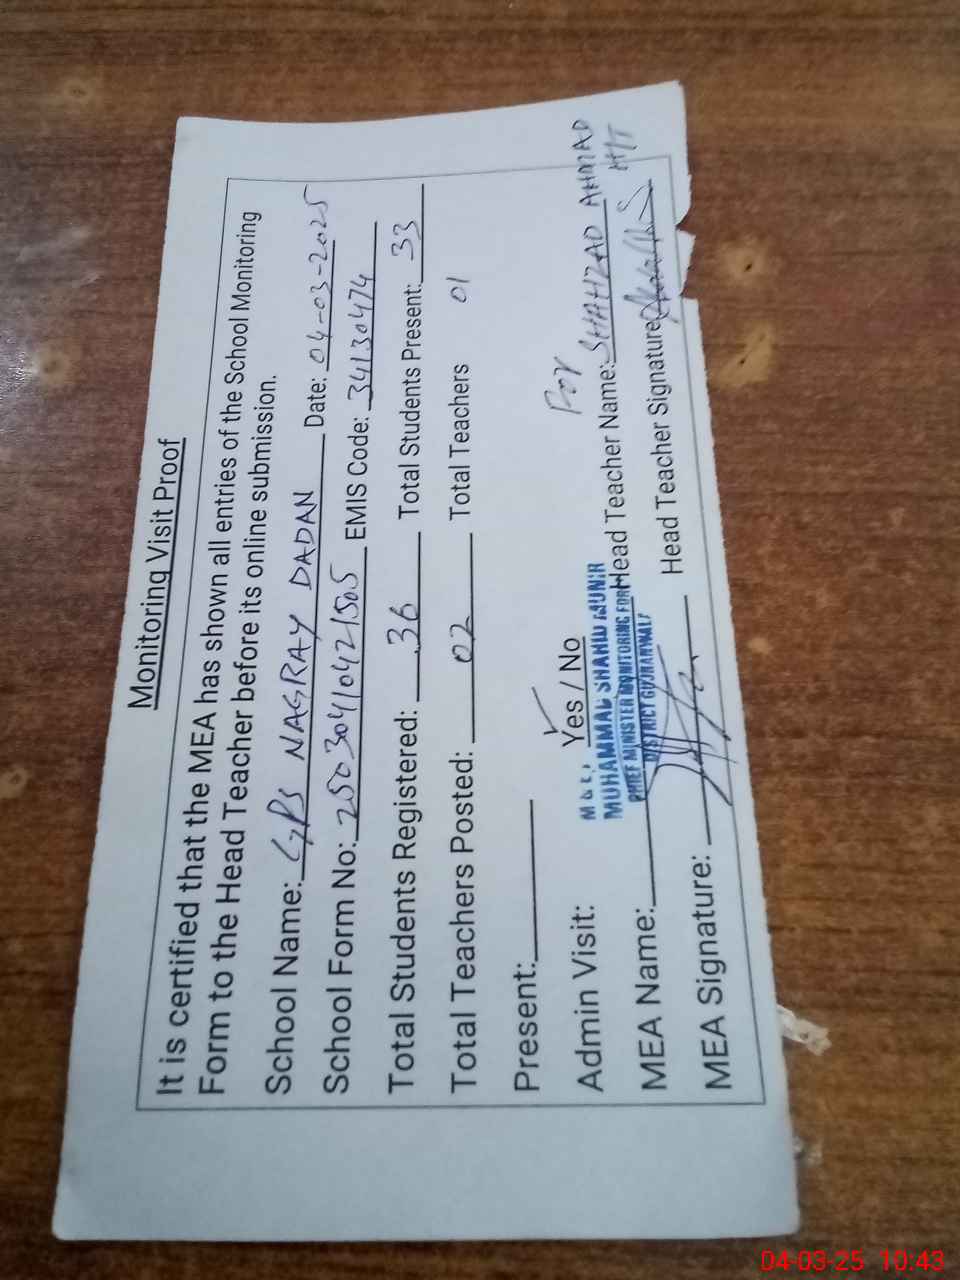 Monitoring Visit Proof
It is certified that the MEA has shown all entries of the School Monitoring
Form to the Head Teacher before its online submission.
School Name: GPS NAGRAY DADAN Date: 04-03-2025
School Form No: 25030410421505 EMIS Code: 34130474
Total Students Registered: 36 Total Students Present: 33
Total Teachers Posted: 02 Total Teachers 01
Present:
Admin Visit: Yes / No For
MUHAMMAD SHAHID MUNIR
CHIEF MINISTER MONITORING FOR
DISTRICT GUJRANWALA
MEA Name: Head Teacher Name: SHAHZAD AHMAD
H/T
MEA Signature: Head Teacher Signature
04-03-25 10:43